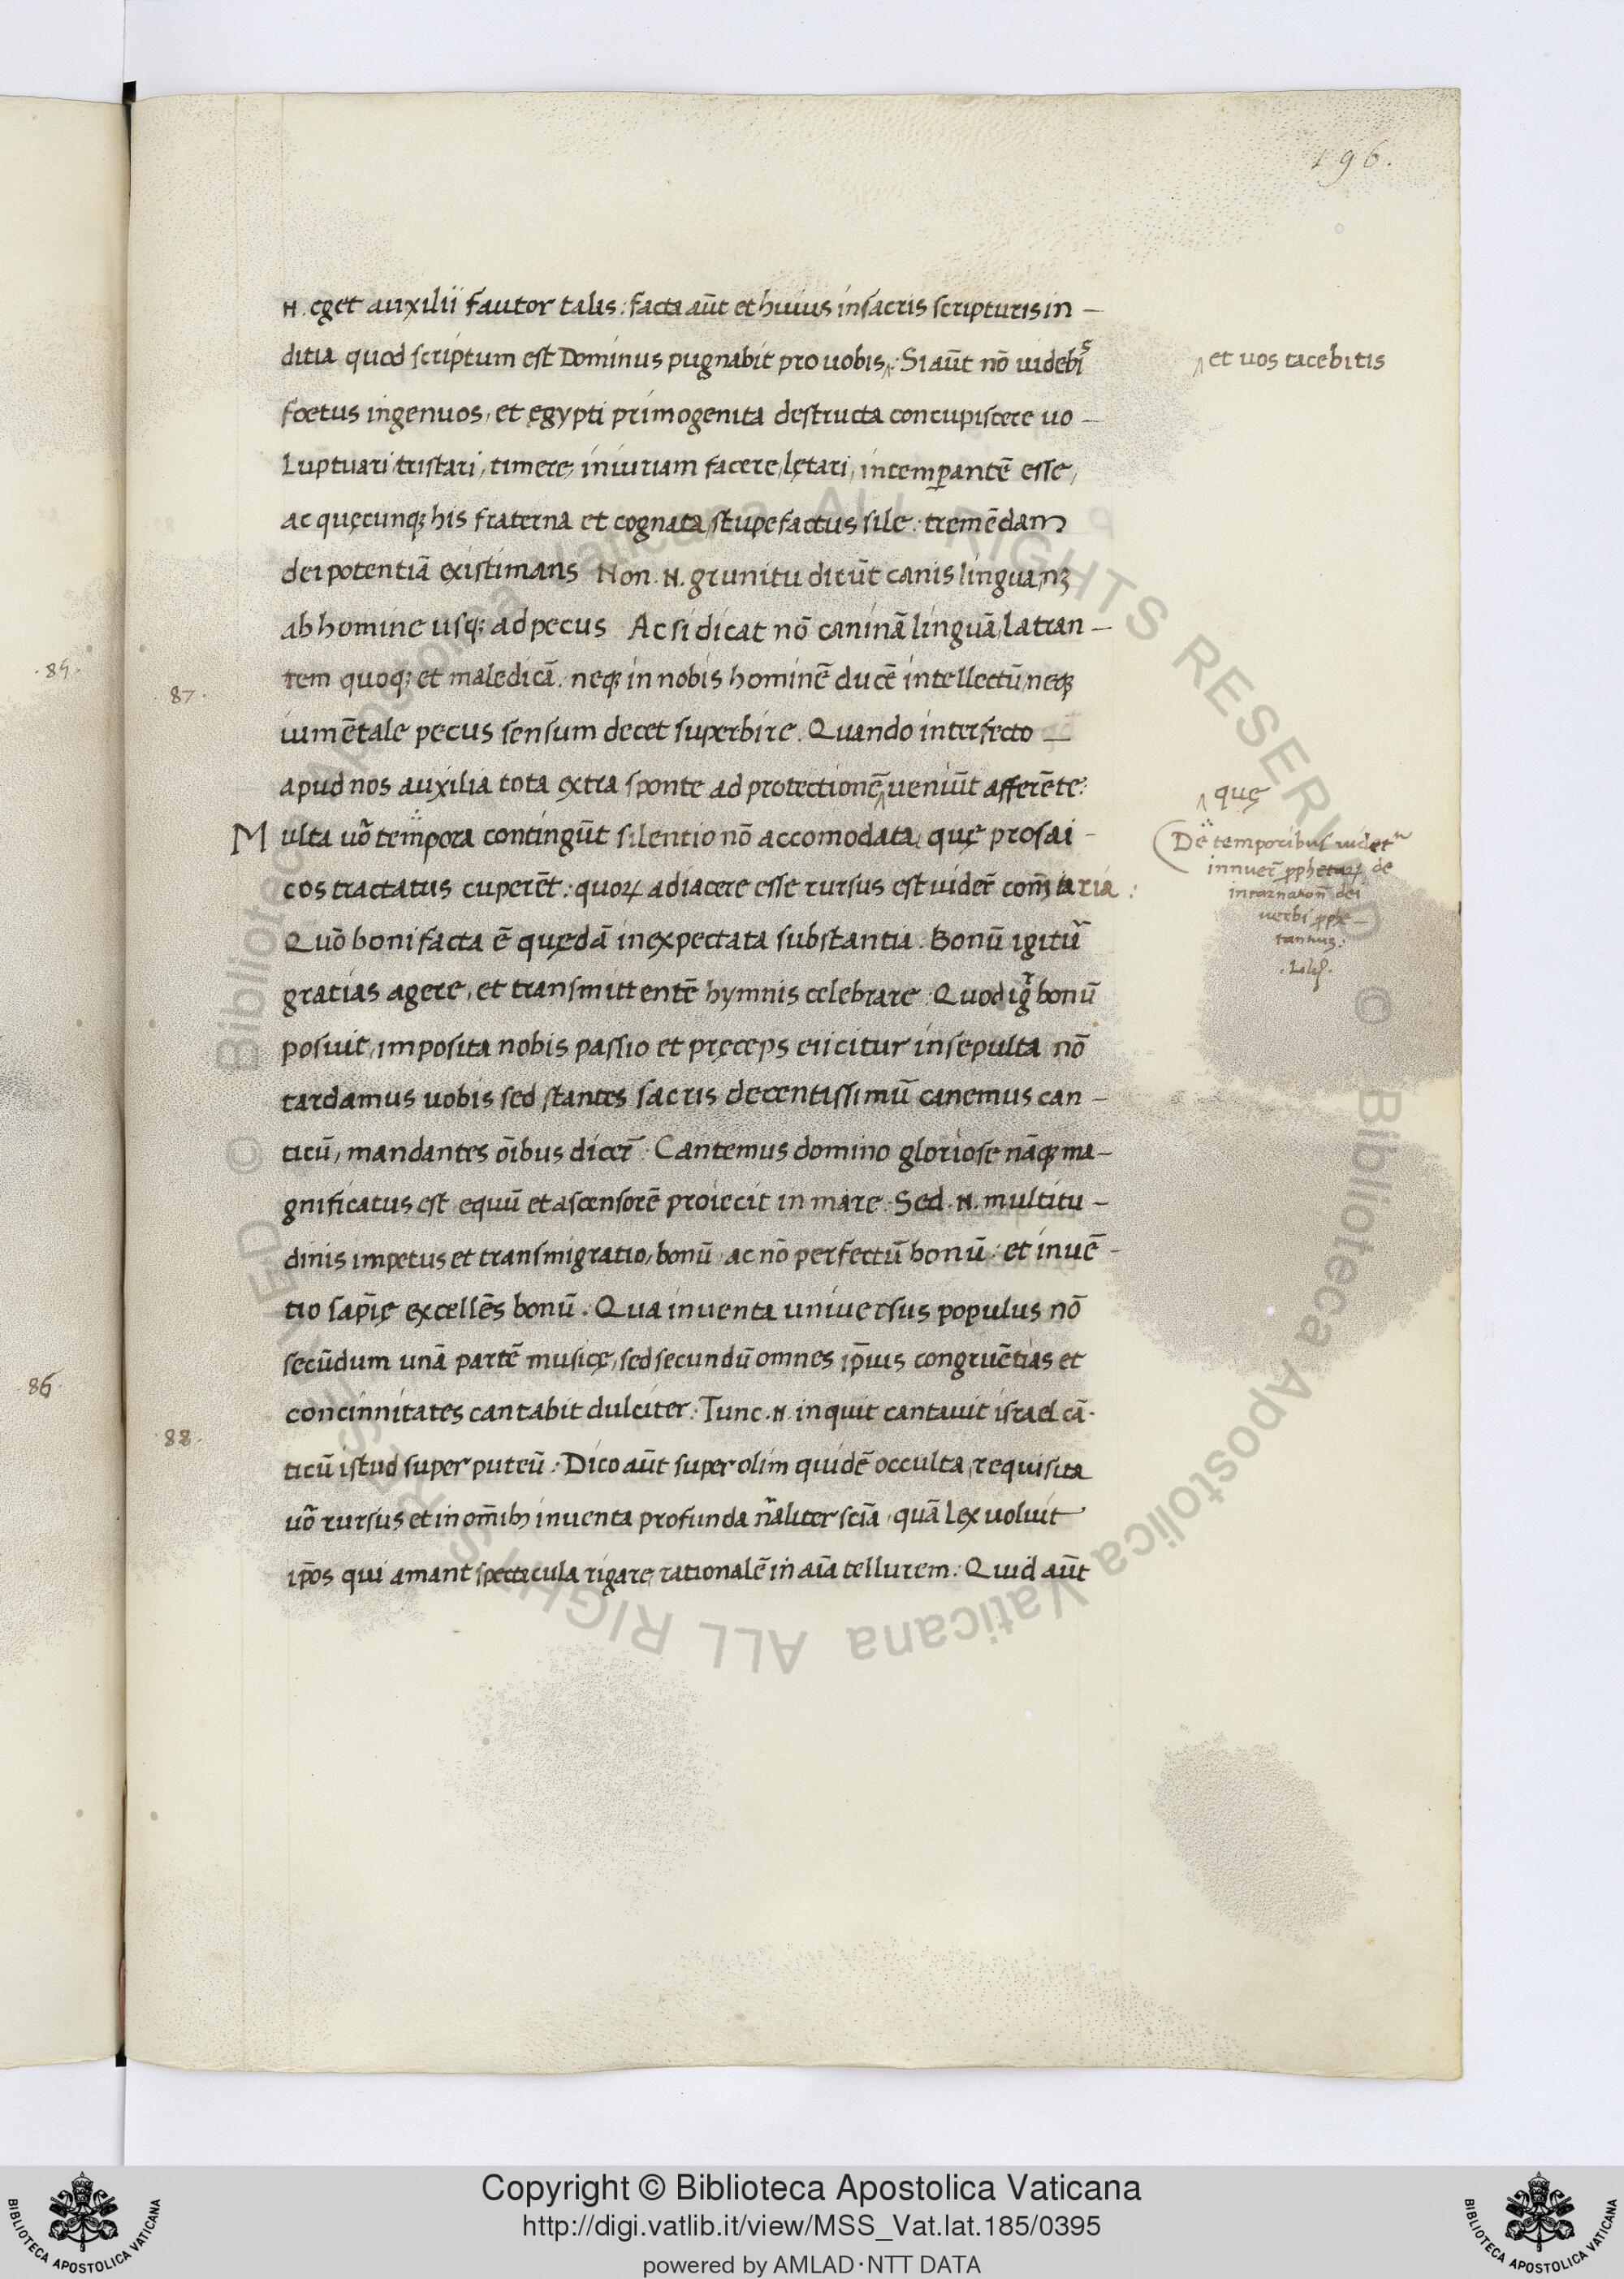 196.
.H. eget auxilii fautor talis : facta aūt et huius in sacris scripturis in –
ditia quod scriptum est Dominus pugnabit pro uobis : Si aūt nō uidebis
et uos tacebitis
foetus ingenuos, et ęgypti primogenita destructa concupiscere uo –
luptuari, tristari, timere, iniuriam facere, lętari, intemꝑantē esse,
ac quęcunq; his fraterna et cognata, stupefactus sile : tremēdam
dei potentiā existimans Non .H. grunitu dicūt canis lingua, nȝ
ab homine usq; ad pecus Ac si dicat nō caninā linguā, latran –
tem quoq; et maledicā. neq; in nobis hominē ducē intellectū, neq;
.85.
87.
iumētale pecus sensum decet superbire. Quando interfecto –
apud nos auxilia tota extra sponte ad protectionē ueniūt afferēte:
quę
Multa uō tempora contingūt silentio nō accomodata, quę prosai –
Dē temporibus uidet
cos tractatus cuperēt : quoꝝ adiacere esse rursus est uider̄ com̄taria :
innuer̄ ꝓphetaꝝ de
incarnation̄ dei
uerbi
Quō boni facta ē quędā inexpectata substantia. Bonū igitur
gratias agere, et transmittentē hymnis celebrare : Quod igr bonū
posuit, imposita nobis passio et pręceps eiicitur insepulta nō
tardamus uobis sed stantes sacris decentissimū canemus can –
ticū, mandantes ōibus dicer̄ : Cantemus domino gloriose nāq; ma –
gnificatus est equū et ascensorē proiecit in mare : Sed .H. multitu –
dinis impetus et transmigratio, bonū, ac nō perfectū bonū : et inuē –
tio sap̄ię excellēs bonū. Qua inuenta uniuersus populus nō
secūdum unā partē musicę, sed secundū omnes ip̄ius congruētias et
86.
concinnitates cantabit dulciter : Tunc .H. inquit cantauit israel cā –
88.
ticū istud super puteū : Dico aūt super olim quidē occulta, requisita
uō rursus et in om̄ib; inuenta profunda nāliter sciā, quā lex uoluit
ip̄os qui amant spectacula rigare, rationalē in aīa tellurem : Quid aūt
© Biblioteca Apostolica Vaticana ALL RIGHTS RESERVED
Copyright © Biblioteca Apostolica Vaticana
http://digi.vatlib.it/view/MSS_Vat.lat.185/0395
powered by AMLAD·NTT DATA
BIBLIOTECA APOSTOLICA VATICANA
BIBLIOTECA APOSTOLICA VATICANA